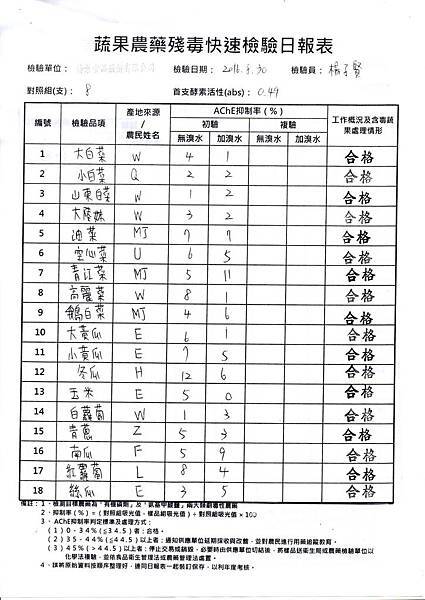 蔬果農藥殘毒快速檢驗日報表
檢驗單位： 檢驗日期： 2016.8.30 檢驗員： 楊子賢
對照組(支)： 8 首支酵素活性(abs)： 0.49
編號 檢驗品項 產地來源/農民姓名 AChE抑制率(%) 工作概況及含毒蔬果處理情形
初驗 複驗
無溴水 加溴水 無溴水 加溴水
1 大白菜 W 4 1 合格
2 小白菜 Q 2 2 合格
3 山東白菜 W 1 2 合格
4 大陸妹 W 3 2 合格
5 油菜 MJ 7 7 合格
6 空心菜 U 6 5 合格
7 青江菜 MJ 5 11 合格
8 高麗菜 W 8 1 合格
9 鵝白菜 MJ 4 6 合格
10 大黃瓜 E 6 1 合格
11 小黃瓜 E 7 5 合格
12 冬瓜 H 12 6 合格
13 玉米 E 5 0 合格
14 白蘿蔔 W 1 3 合格
15 青蔥 Z 5 3 合格
16 南瓜 F 5 9 合格
17 紅蘿蔔 L 8 4 合格
18 絲瓜 E 3 5 合格
備註：1、檢測目標農藥為"有機磷劑"及"氨基甲酸鹽"兩大類劇毒性農藥
2、抑制率(%)=(對照組吸光值-樣品組吸光值)÷對照組吸光值×100
3、AChE抑制率判定標準及處理方式：
(1)0-34%(≦34.5)者：合格。
(2)35-44%(≦44.5)以上者：通知供應單位延期採收與改善，並對農民進行用藥追蹤教育。
(3)45%(>44.5)以上者：停止交易或銷毀，必要時由供應單位切結後，將樣品送衛生局或農藥檢驗單位以
化學法複驗，並依食品衛生管理法或農藥管理法處置。
4、請將原始資料按順序整理好，連同日報表一起裝訂保存，以利年度考核。